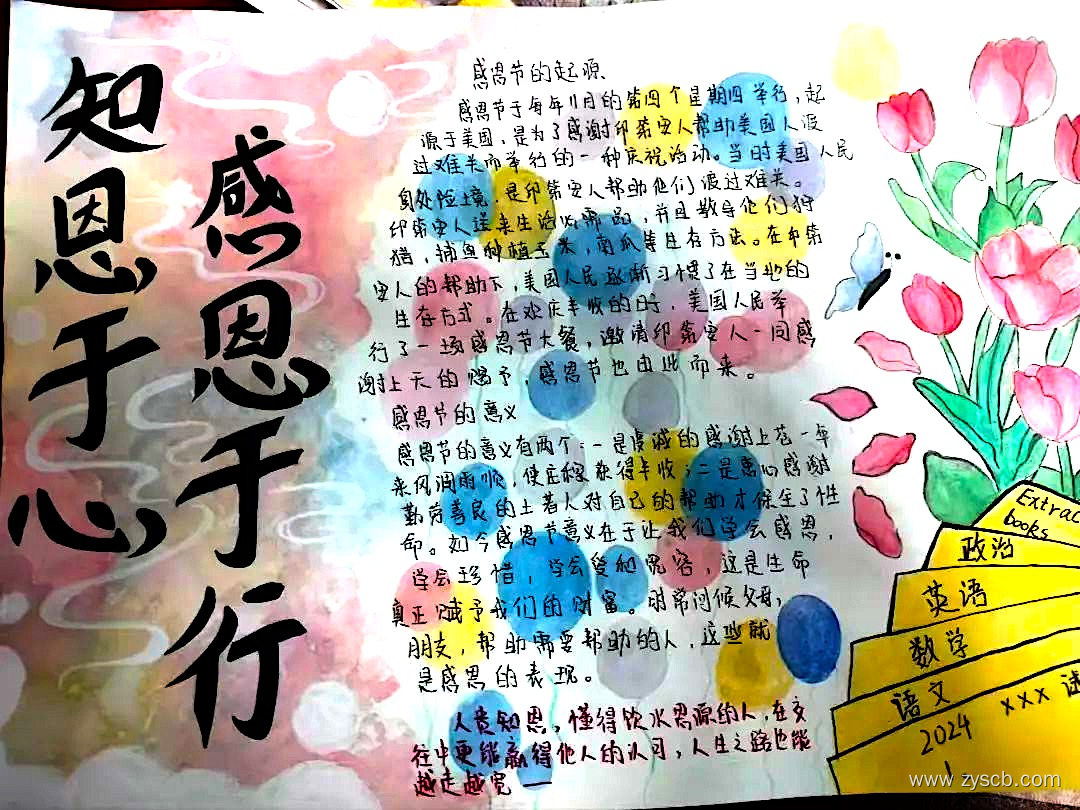 知恩于心
感恩于行
感恩节的起源
感恩节于每年11月的第四个星期四举行，起
源于美国，是为了感谢印第安人帮助美国人渡
过难关而举行的一种庆祝活动。当时美国人民
身处险境，是印第安人帮助他们渡过难关。
印第安人送来生活必需品，并且教导他们狩
猎，捕鱼种植玉米，南瓜等生存方法。在印第
安人的帮助下，美国人民逐渐习惯了在当地的
生存方式。在欢庆丰收的日子，美国人民举
行了一场感恩节大餐，邀请印第安人一同感
谢上天的赐予，感恩节也由此而来。
感恩节的意义
感恩节的意义有两个：一是虔诚的感谢上苍一年
来风调雨顺，使庄稼获得丰收；二是衷心感谢
勤劳善良的土著人对自己的帮助才保全了性
命。如今感恩节意义在于让我们学会感恩，
学会珍惜，学会爱和宽容，这是生命
真正赋予我们的财富。时常问候父母，
朋友，帮助需要帮助的人，这些就
是感恩的表现。
人贵知恩，懂得饮水思源的人，在交
往中更能赢得他人的认可，人生之路也能
越走越宽
Extrac
books
政治
英语
数学
语文
2024
xxx
www.zyscb.com